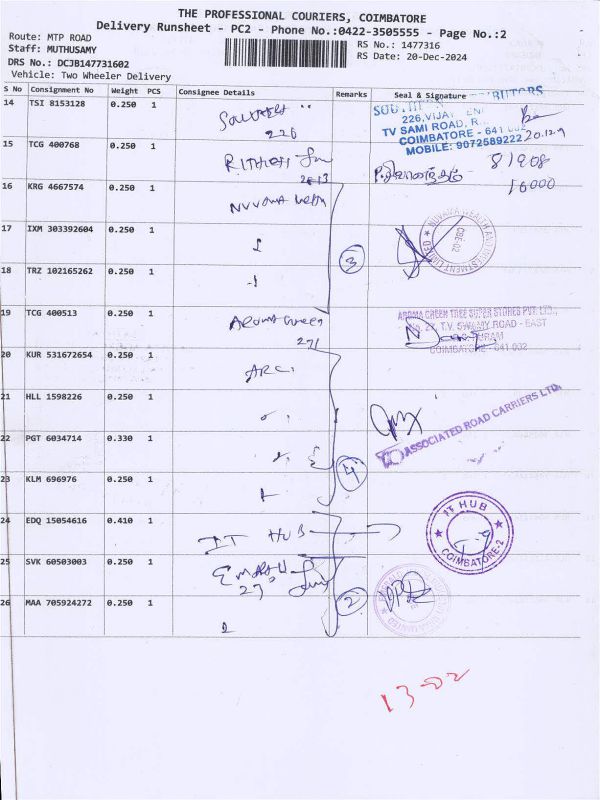 THE PROFESSIONAL COURIERS, COIMBATORE
Delivery Runsheet - PC2 - Phone No.:0422-3505555 - Page No.:2
Route: MTP ROAD
Staff: MUTHUSAMY
RS No.: 1477316
DRS No.: DCJB147731602
RS Date: 20-Dec-2024
Vehicle: Two Wheeler Delivery
S No Consignment No Weight PCS Consignee Details Remarks Seal & Signature
14 TSI 8153128 0.250 1
226
226,VIJAY
TV SAMI ROAD, R
COIMBATORE - 641 002
MOBILE: 9072589222
15 TCG 400768 0.250 1
81908
16000
16 KRG 4667574 0.250 1
17 IXM 303392604 0.250 1
NUVAMA WEALTH AND INVESTMENT LIMITED
CBE-02
3
18 TRZ 102165262 0.250 1
19 TCG 400513 0.250 1 Aroma Green
271
AROMA GREEN TREE SUPER STORES PVT. LTD.,
27, T.V. SWAMY ROAD - EAST
COIMBATORE - 641 002
20 KUR 531672654 0.250 1 ARC
21 HLL 1598226 0.250 1
ASSOCIATED ROAD CARRIERS LTD.
22 PGT 6034714 0.330 1
4
23 KLM 696976 0.250 1
24 EDQ 15054616 0.410 1 IT HUB
IT HUB
COIMBATORE-2
25 SVK 60503003 0.250 1
27
2
26 MAA 705924272 0.250 1
13-02